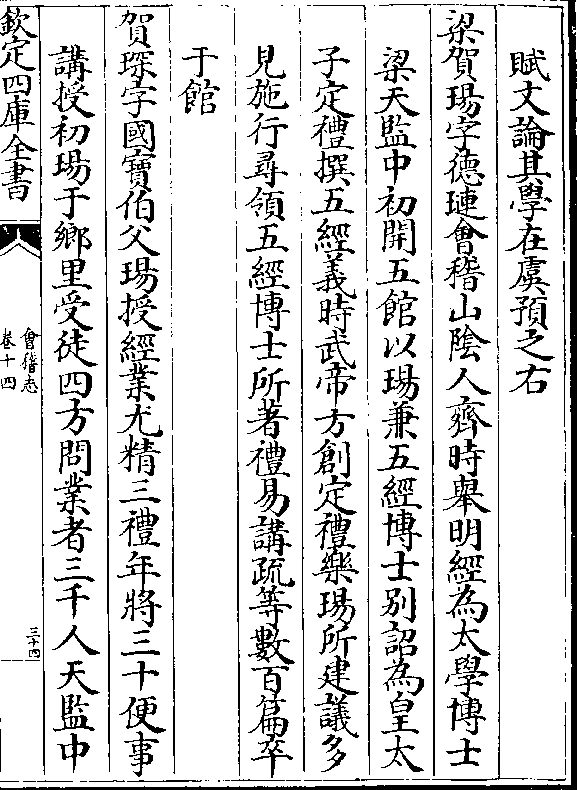 賦文論其學在虞預之右
梁賀瑒字德璉會稽山陰人齊時舉明經為太學博士
梁天監中初開五館以瑒兼五經博士別詔為皇太
子定禮撰五經義時武帝方創定禮樂瑒所建議多
見施行尋領五經博士所著禮易講疏等數百篇卒
于館
賀琛字國寶伯父瑒授經業尤精三禮年將三十便事
講授初瑒于鄉里受徒四方問業者三千人天監中
欽定四庫全書
會稽志
卷十四
三十四